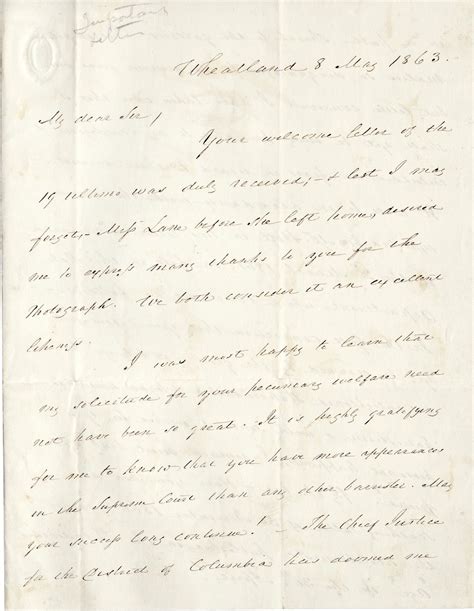 Important
letter
Wheatland 8 May 1863.
My dear Sir,
Your welcome letter of the
19 ultimo was duly received; & lest I may
forget, Miss Lane before she left home, desired
me to express many thanks to you for the
Photograph. We both consider it an excellent
likeness.
I was most happy to learn that
my solicitude for your pecuniary welfare need
not have been so great. It is highly gratifying
for me to know that you have more appearances
in the Supreme Court than any other barrister. May
your success long continue! – The Chief Justice
for the District of Columbia has doomed me